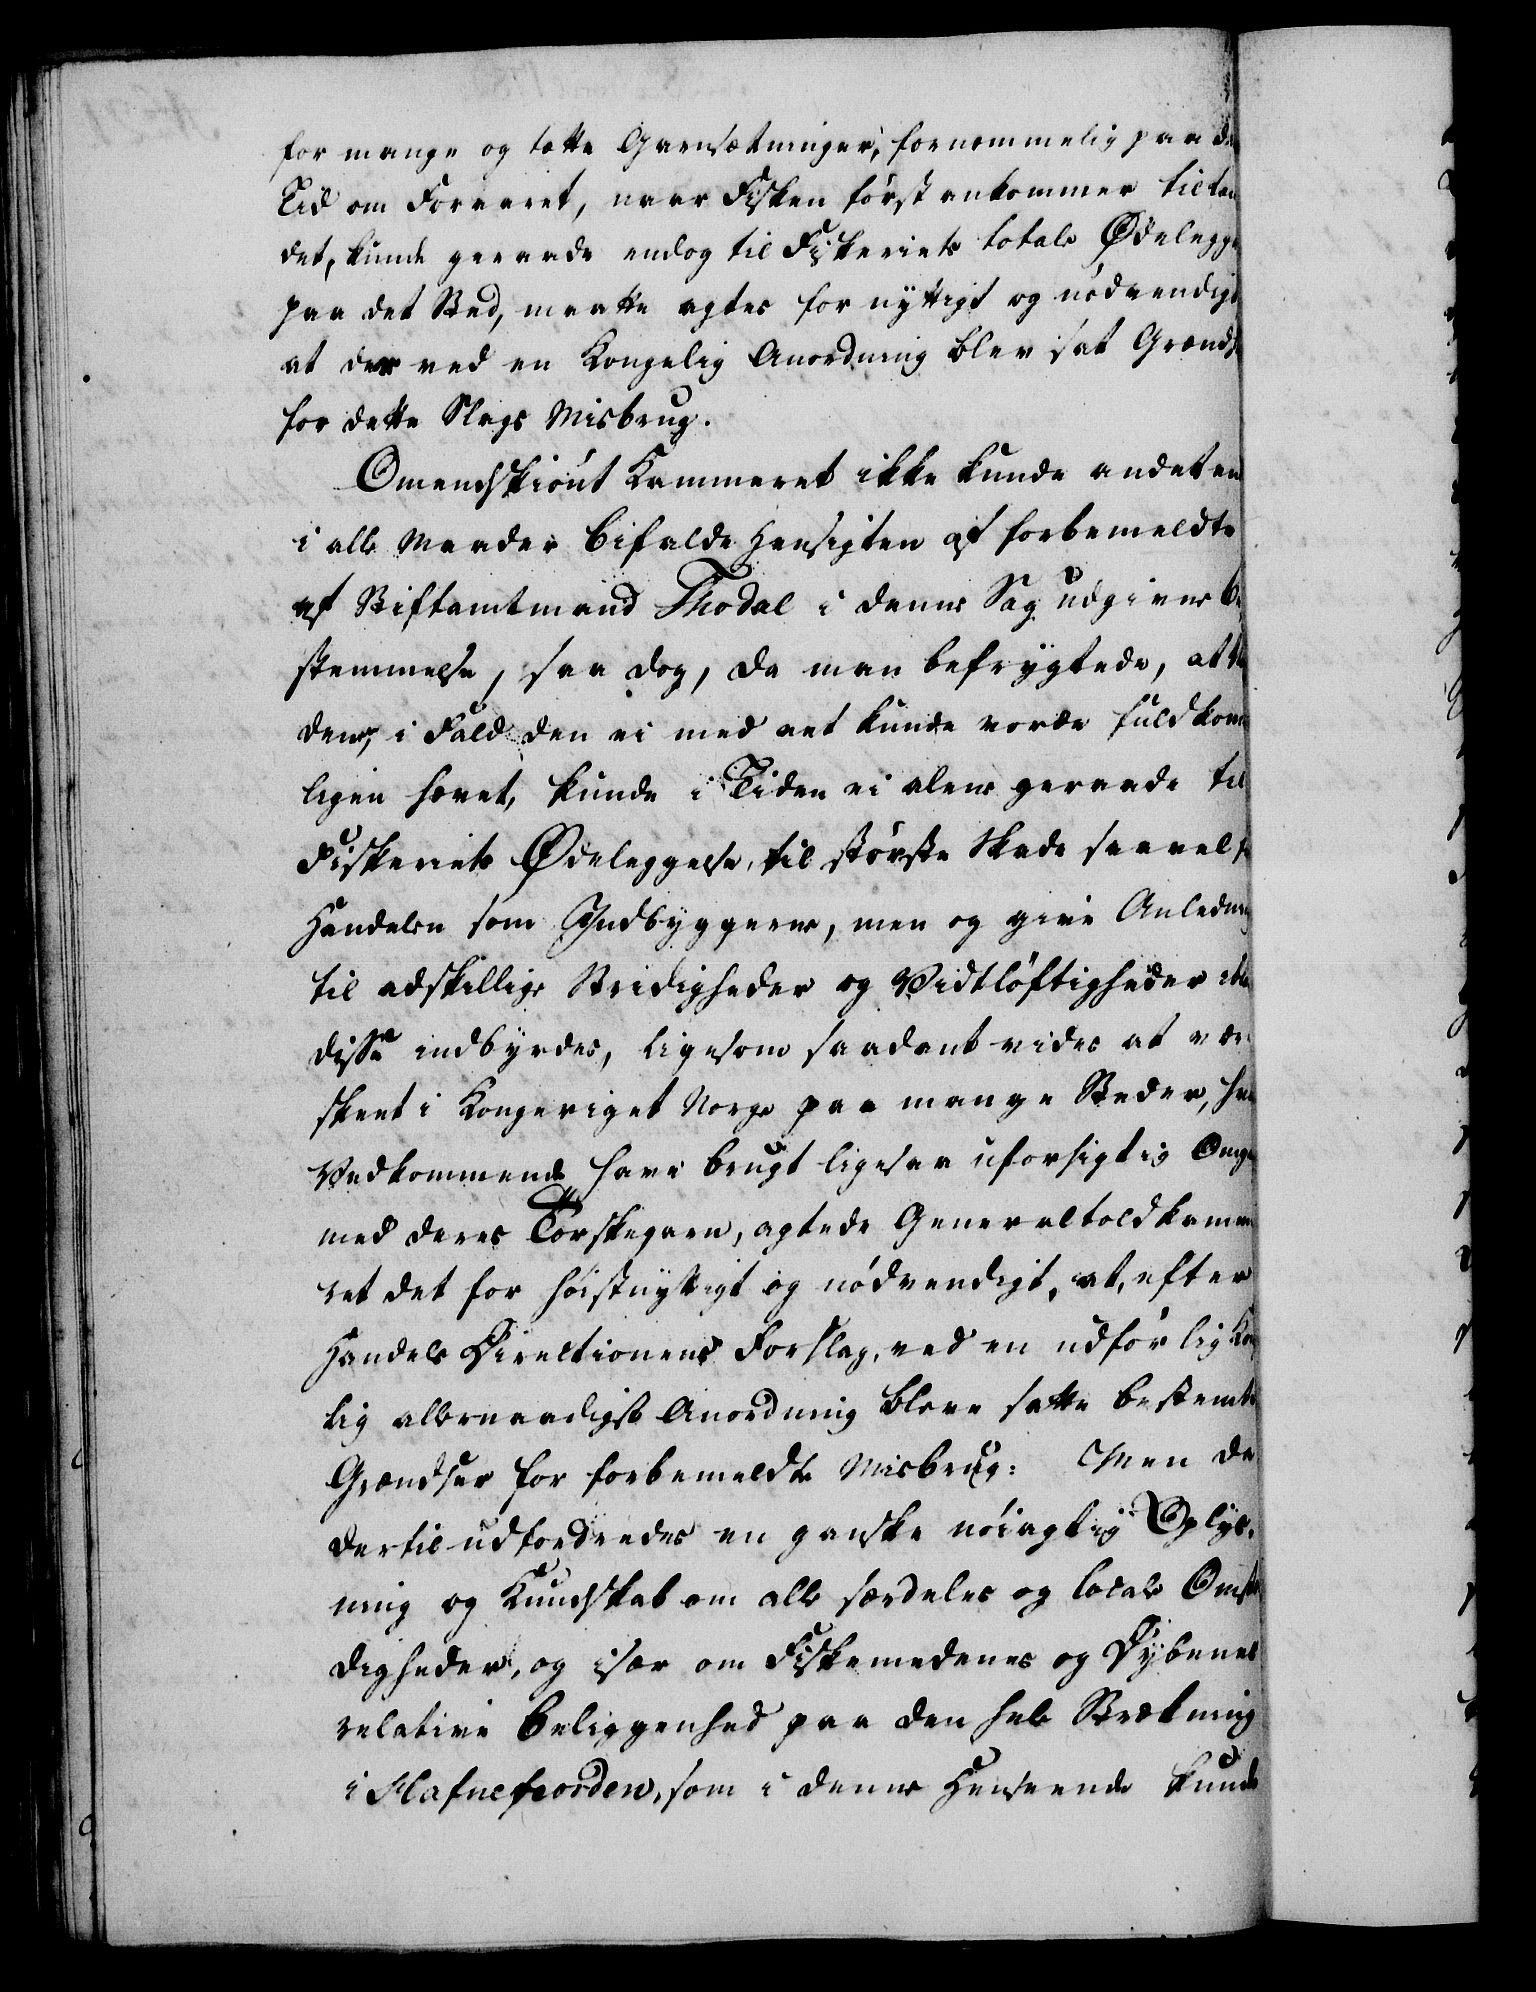 for mange og tætte Garnsætninger, fornemmelig paa de
Tid om Foraaret, naar Fisken først ankommer til lan
det, kunde geraade endog til Fiskeriets totale Ødelegge
paa det Sted, maatte agtes for nyttigt og nødvendigt
at der ved en Kongelig Anordning blev sat Grændse
for dette Slags Misbrug.
Omendskiønt Kammeret ikke kunde andet end
i alle Maader bifalde Hensigten af forbemeldte
af Stiftamtmand Thodal i denne Sag udgivne be
stemmelse, saa dog, da man befrygtede, at
den, i Fald den ei med eet kunde vorde fuldkom
ligen hævet, kunde i Tiden ei alene geraade til
Fiskeriets Ødeleggelse, til største Skade saavel for
Handelen som Indbyggerne, men og give Anledning
til adskillige Stridigheder og Vidtløftigheder
disse indbyrdes, ligesom saadant vides at være
skeet i Kongeriget Norge paa mange Steder, hvor
Vedkommende have brugt ligesaa uforsigtig Omgang
med deres Torskegarn, agtede Generaltoldkamme
ret det for høistnyttigt og nødvendigt, at, efter
Handels Directionens Forslag, ved en udførlig Kong
lig allernaadigst Anordning bleve satte bestemte
Grændser for forbemeldte Misbrug: Men da
dertil udfordredes en ganske nøiagtig Oplys-
ning og Kundskab om alle særdeles og locale Omstæn
digheder, og især om Fiskemedenes og Dybenes
relative Beliggenhed paa den hele Strækning
i Hafnefiorden, som i denne Henseende kunde